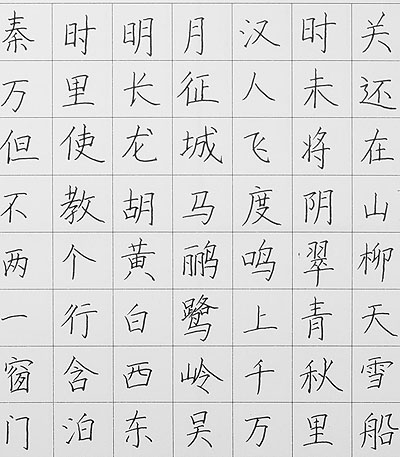 秦时明月汉时关
万里长征人未还
但使龙城飞将在
不教胡马度阴山
两个黄鹂鸣翠柳
一行白鹭上青天
窗含西岭千秋雪
门泊东吴万里船